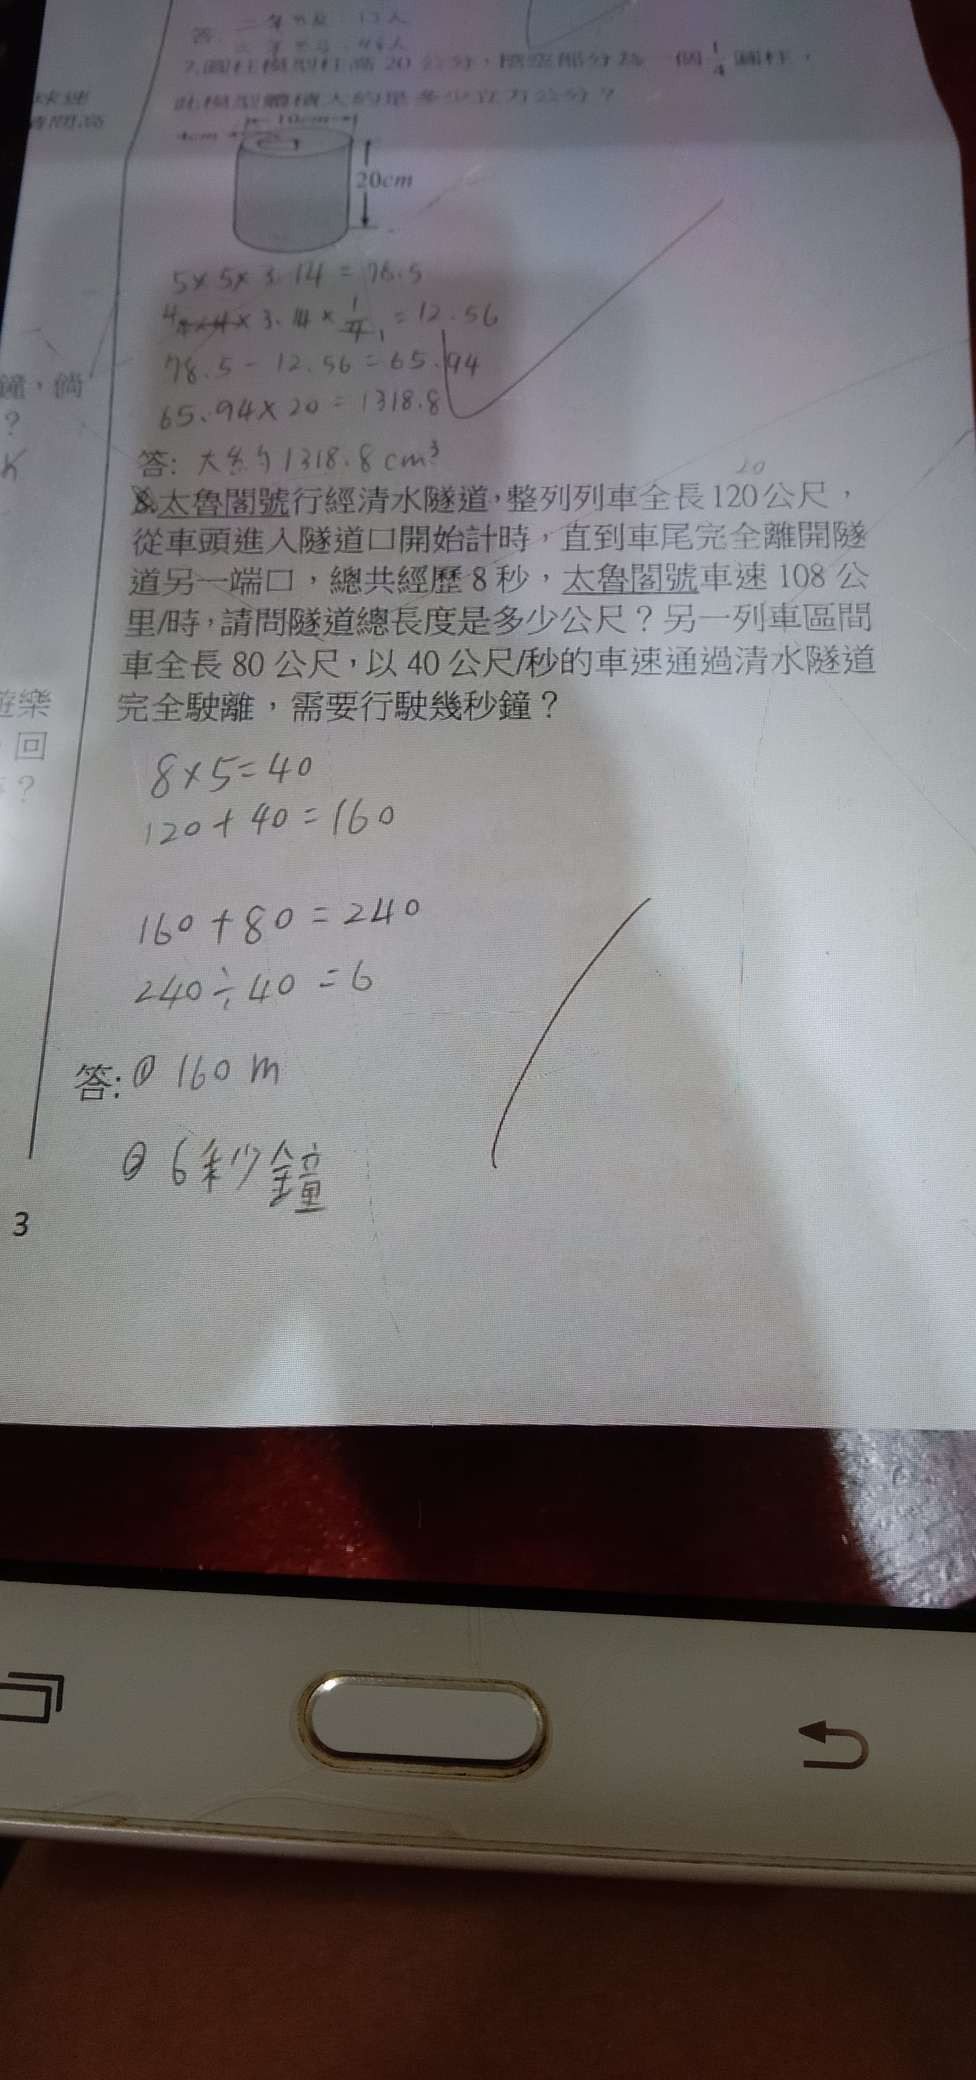 7.圓柱模型柱高20公分，陰空部分為一個1/4圓柱，
此模型體積大約是多少立方公分？
10cm
4cm
20cm
5×5×3.14=78.5
4×4×3.14×1/4=12.56
78.5-12.56=65.94
65.94×20=1318.8
答:大約1318.8cm³
20
8.太魯閣號行經清水隧道，整列列車全長120公尺，
從車頭進入隧道口開始計時，直到車尾完全離開隧
道另一端口，總共經歷8秒，太魯閣號車速108公
里/時，請問隧道總長度是多少公尺？另一列車區間
車全長80公尺，以40公尺/秒的車速通過清水隧道
完全駛離，需要行駛幾秒鐘？
8×5=40
120+40=160
160+80=240
240÷40=6
答:① 160 m
② 6秒鐘
鐘，倘
?
遊樂
回
?
3